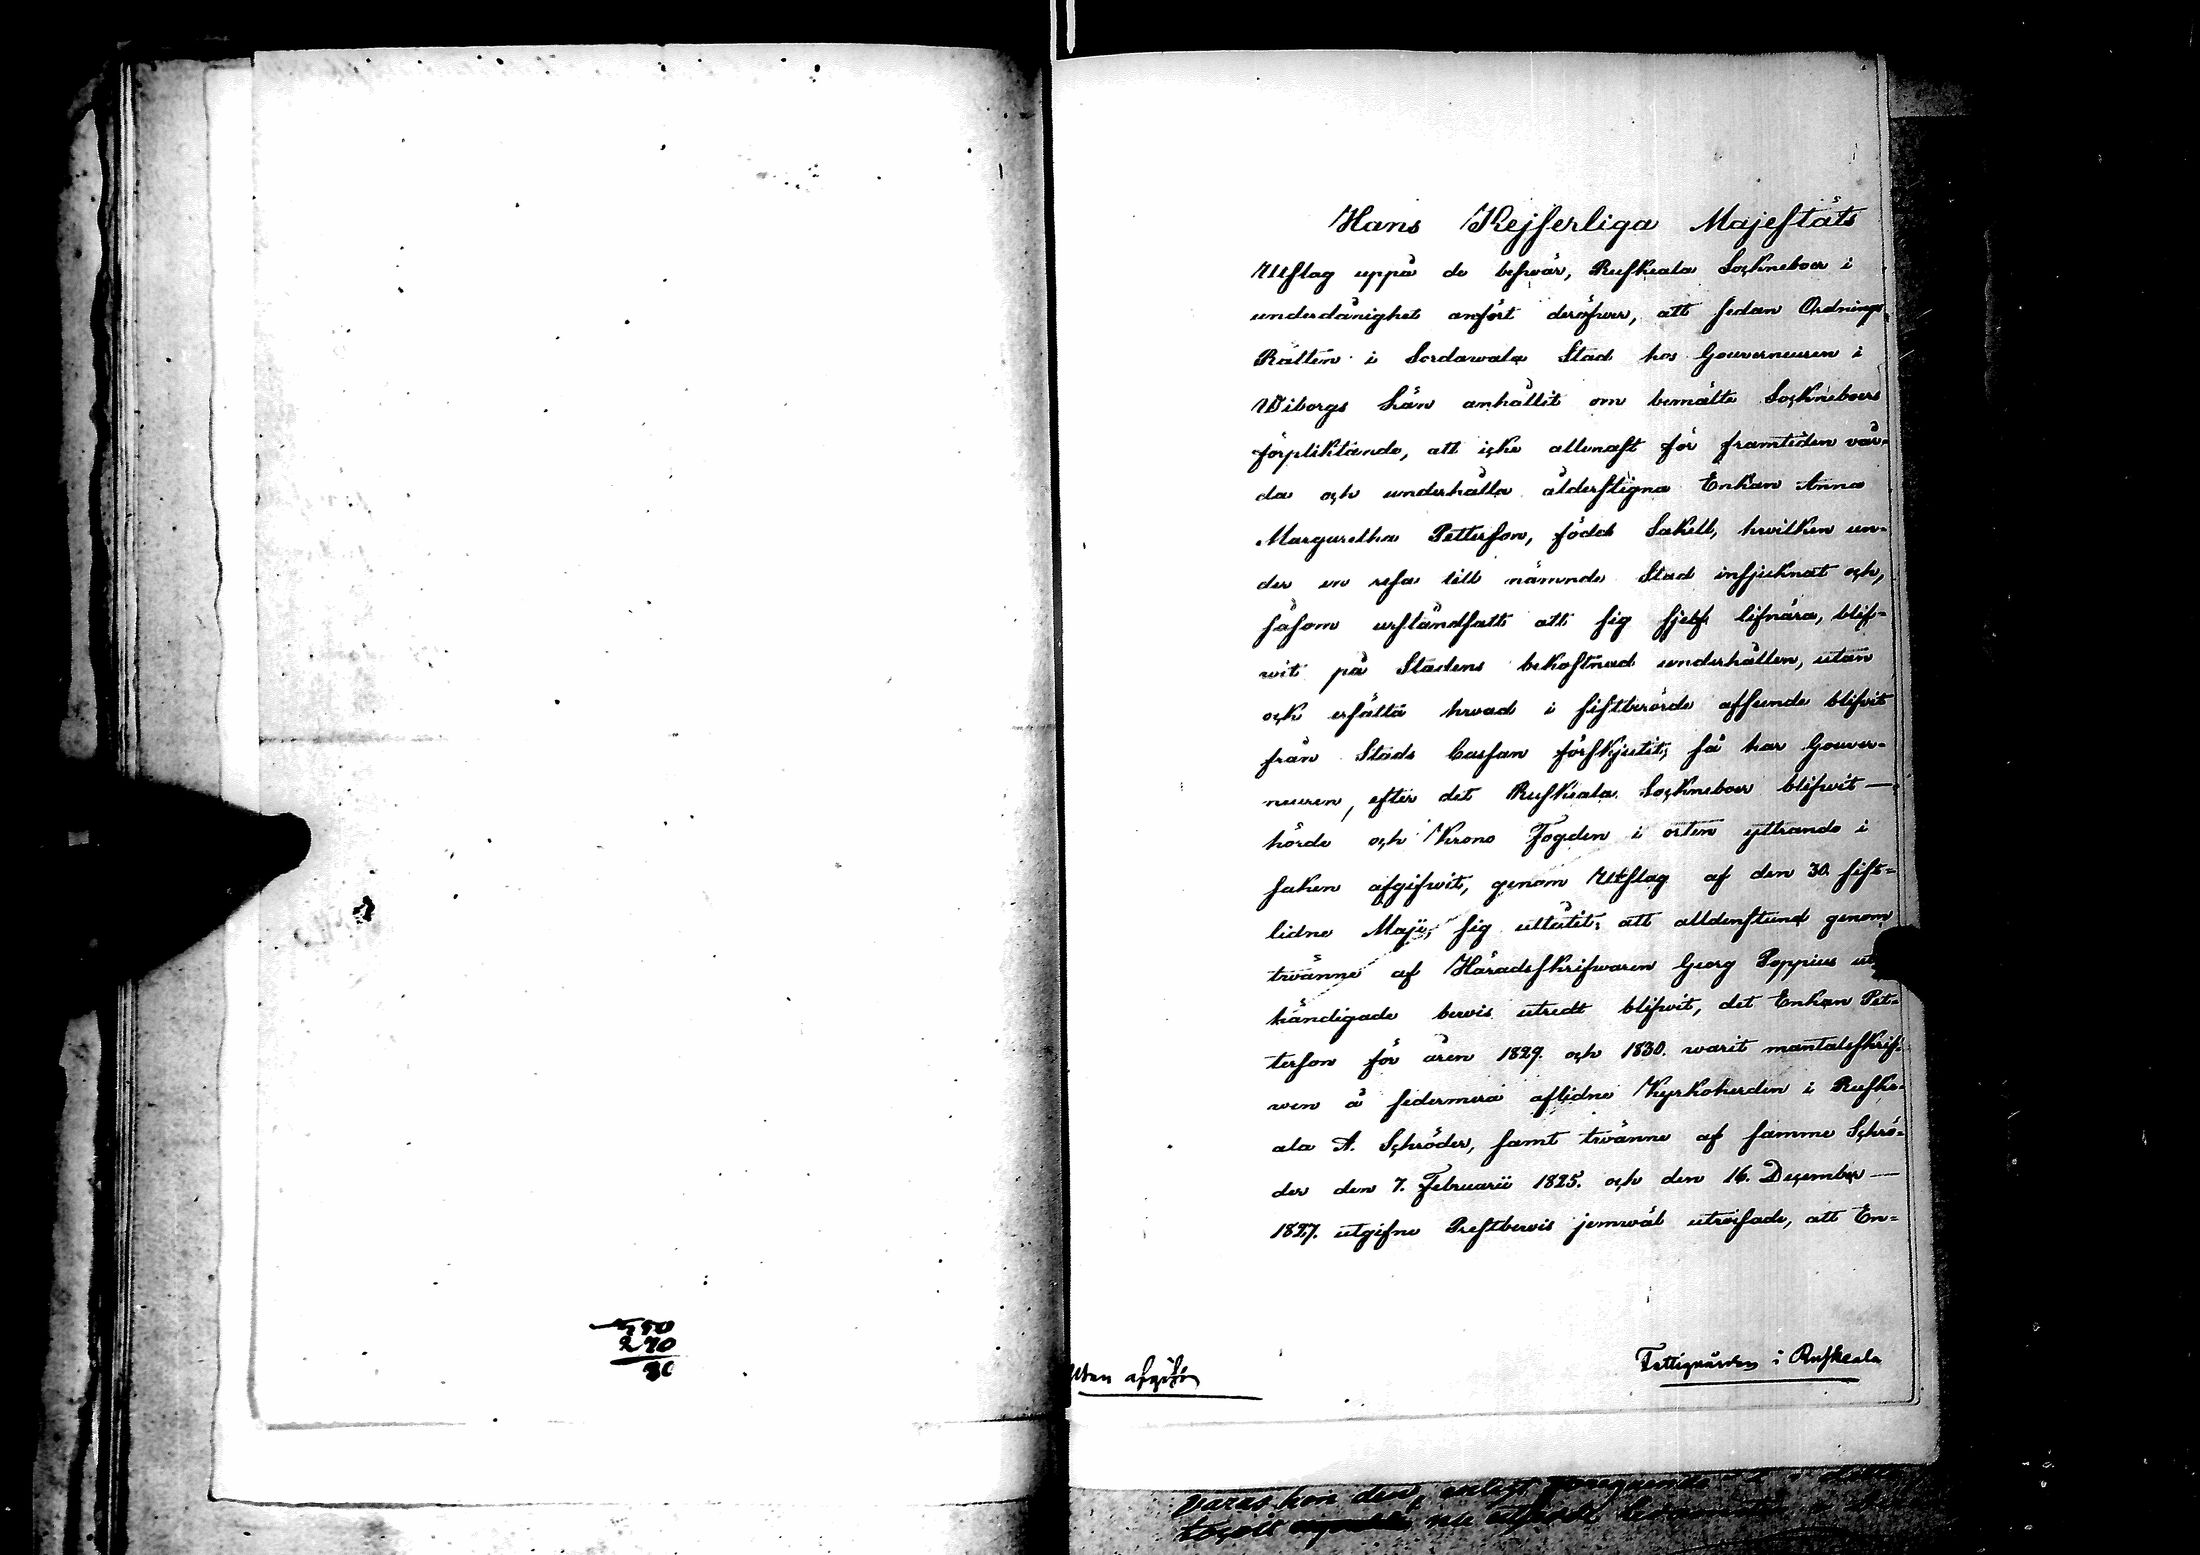 750
270
80
Hans Kejserliga Majestäts
Utslag uppå de besvär, Ruskeala Sockneboer i
underdånighet anfört deröfver, att sedan Ordnings
Rätten i Sordawala Stad hos Gouverneuren i
Wiborgs Län anhållit om bemälte Sockneboers
förpliktande, att icke allenast för framtiden vår-
da och underhålla ålderstigna Enkan Anna
Margaretha Petterson, född Sakell, hwilken un-
der en resa till nämnde Stad insjuknat och,
såsom urståndsatt att sig sjelf lifnära, blif-
wit på Stadens bekostnad underhållen, utan
ock ersätta hwad i sistberörde afseende blifvit
från Stads Cassan förskjutit; så har Gouver-
neuren, efter det Ruskeala Sockneboer blifwit —
hörde och Krono Fogden i orten yttrande i
saken afgifwit, genom Utslag af den 30. sist-
lidne Maji, sig utlåtit; att alldenstund genom
twänne af Häradsskrifwaren Georg Poppius ut
händigade bewis utredt blifwit, det Enkan Pet-
terson för åren 1829. och 1830. warit mantalsskrif-
wen å sedermera aflidne Kyrkoherden i Ruske-
ala A. Schröder, samt twänne af samme Schrö-
der den 7. Februarii 1825. och den 16. December —
1827. utgifne Prestbewis jemwäl utwisade, att En-
Fattigvården i Ruskeala
afgifva
varas hon den, enligt
nu